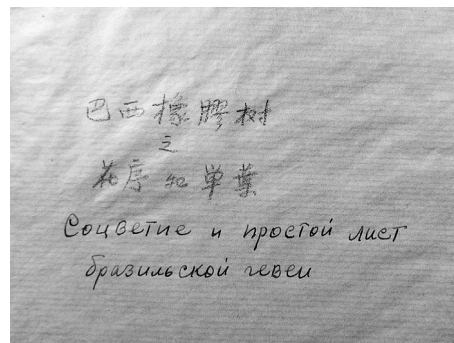 巴西橡膠树
之
花序和单葉
Соцветие и простой лист
бразильской гевеи